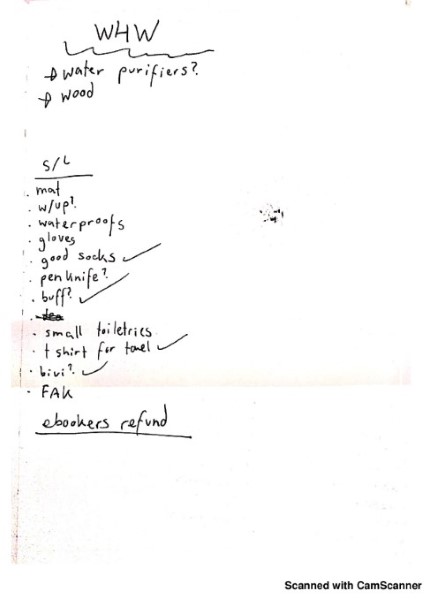 WHW
→ water purifiers?
→ wood
S/L
· mat
· w/up?
· waterproofs
· gloves
· good socks ✓
· penknife?
· buff? ✓
· small toiletries
· t shirt for towel ✓
· bivi? ✓
· FAK
ebookers refund
Scanned with CamScanner